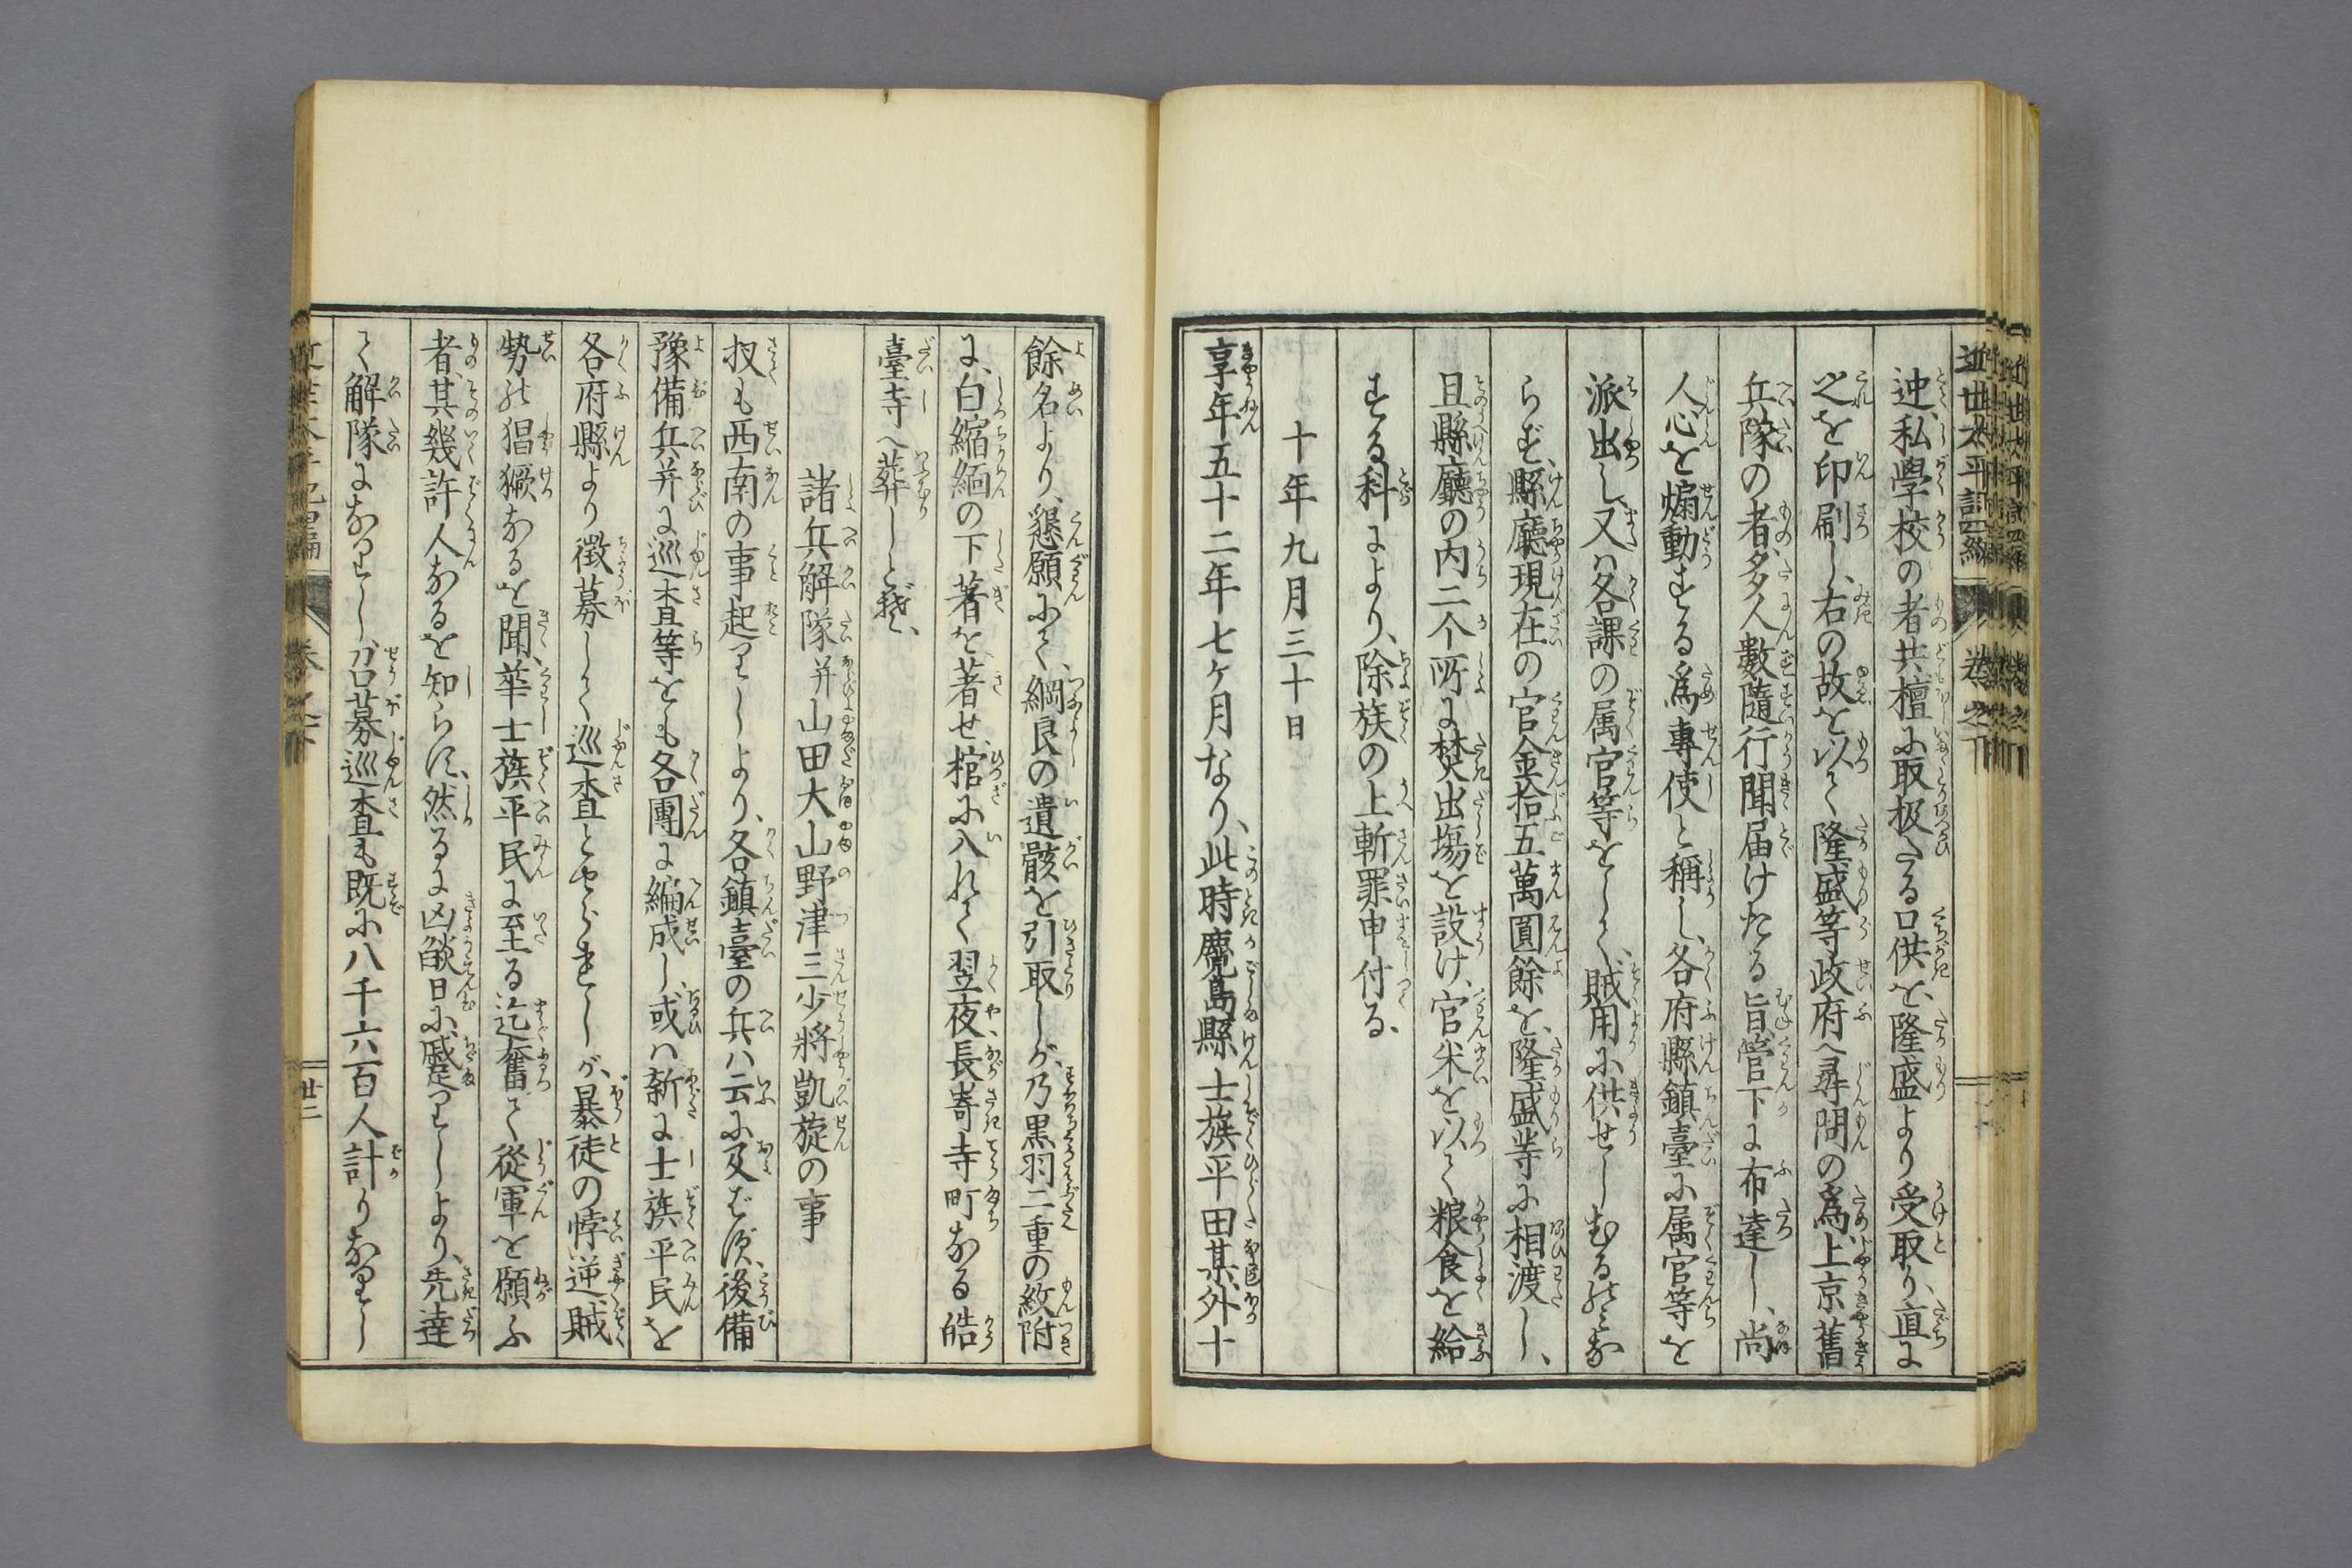 迚私學校の者共檀に取扱たる口供を隆盛より受取り、直に
之を印刷し、右の故を以て隆盛等政府へ尋問の爲上京舊
兵隊の者、多人數隨行聞届けたる旨管下に布達し、尚
人心を煽動する爲專使と稱し、各府縣鎮臺に属官等を
派出し又ハ各課の属官等をして、賊用に供せしむるのみな
らず、縣廳現在の官金拾五萬圓餘を、隆盛等に相渡し、
且縣廳の内二个所に焚出塲を設け、官米を以て粮食を給
する科により、除族の上斬罪申付る、
十年九月三十日
享年五十二年七ケ月なり、此時麑島縣士族平田某外十
餘名より、懇願にて、綱良の遺骸を引取しが、乃黒羽二重の紋附
に、白縮緬の下著を著せ、棺に入れて翌夜、長嵜寺町なる皓
臺寺へ葬しとぞ、
諸兵解隊并山田大山野津三少將凱旋の事
扠も西南の事起りしより、各鎮臺の兵ハ云に及ばず、後備
豫備兵并に巡査等をも各團に編成し、或ハ新に士族平民を
各府縣より徴募して巡査とせられしが、暴徒の悖逆、賊
勢の猖獗なるを聞、華士族平民に至る迄奮て從軍を願ふ
者、其幾許人なるを知らず、然るに凶燄日に、蹙りしより、先達
て解隊になりしが召募巡査も既に八千六百人計りなりし
近世太平記四編
卷之下
廿二